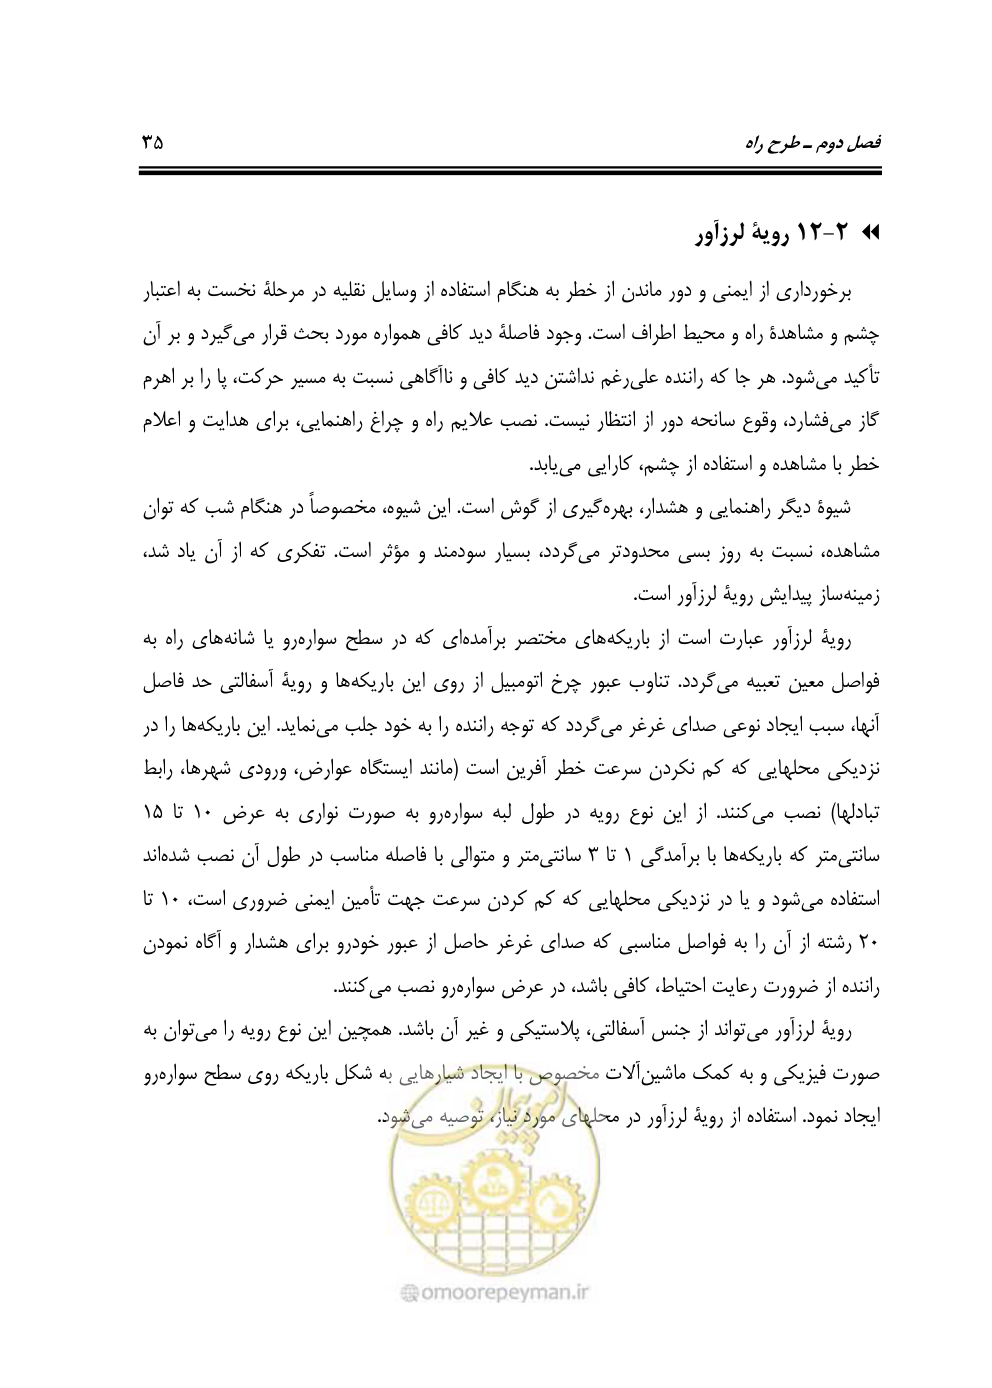 فصل دوم ـ طرح راه ۳۵
۲-۱۲ رویهٔ لرزآور
برخورداری از ایمنی و دور ماندن از خطر به هنگام استفاده از وسایل نقلیه در مرحلهٔ نخست به اعتبار
چشم و مشاهدهٔ راه و محیط اطراف است. وجود فاصلهٔ دید کافی همواره مورد بحث قرار می‌گیرد و بر آن
تأکید می‌شود. هر جا که راننده علی‌رغم نداشتن دید کافی و ناآگاهی نسبت به مسیر حرکت، پا را بر اهرم
گاز می‌فشارد، وقوع سانحه دور از انتظار نیست. نصب علایم راه و چراغ راهنمایی، برای هدایت و اعلام
خطر با مشاهده و استفاده از چشم، کارایی می‌یابد.
شیوهٔ دیگر راهنمایی و هشدار، بهره‌گیری از گوش است. این شیوه، مخصوصاً در هنگام شب که توان
مشاهده، نسبت به روز بسی محدودتر می‌گردد، بسیار سودمند و مؤثر است. تفکری که از آن یاد شد،
زمینه‌ساز پیدایش رویهٔ لرزآور است.
رویهٔ لرزآور عبارت است از باریکه‌های مختصر برآمده‌ای که در سطح سواره‌رو یا شانه‌های راه به
فواصل معین تعبیه می‌گردد. تناوب عبور چرخ اتومبیل از روی این باریکه‌ها و رویهٔ آسفالتی حد فاصل
آنها، سبب ایجاد نوعی صدای غرغر می‌گردد که توجه راننده را به خود جلب می‌نماید. این باریکه‌ها را در
نزدیکی محلهایی که کم نکردن سرعت خطر آفرین است (مانند ایستگاه عوارض، ورودی شهرها، رابط
تبادلها) نصب می‌کنند. از این نوع رویه در طول لبه سواره‌رو به صورت نواری به عرض ۱۰ تا ۱۵
سانتی‌متر که باریکه‌ها با برآمدگی ۱ تا ۳ سانتی‌متر و متوالی با فاصله مناسب در طول آن نصب شده‌اند
استفاده می‌شود و یا در نزدیکی محلهایی که کم کردن سرعت جهت تأمین ایمنی ضروری است، ۱۰ تا
۲۰ رشته از آن را به فواصل مناسبی که صدای غرغر حاصل از عبور خودرو برای هشدار و آگاه نمودن
راننده از ضرورت رعایت احتیاط، کافی باشد، در عرض سواره‌رو نصب می‌کنند.
رویهٔ لرزآور می‌تواند از جنس آسفالتی، پلاستیکی و غیر آن باشد. همچنین این نوع رویه را می‌توان به
صورت فیزیکی و به کمک ماشین‌آلات مخصوص با ایجاد شیارهایی به شکل باریکه روی سطح سواره‌رو
ایجاد نمود. استفاده از رویهٔ لرزآور در محلهای مورد نیاز، توصیه می‌شود.
امور پیمان
@omoorepeyman.ir